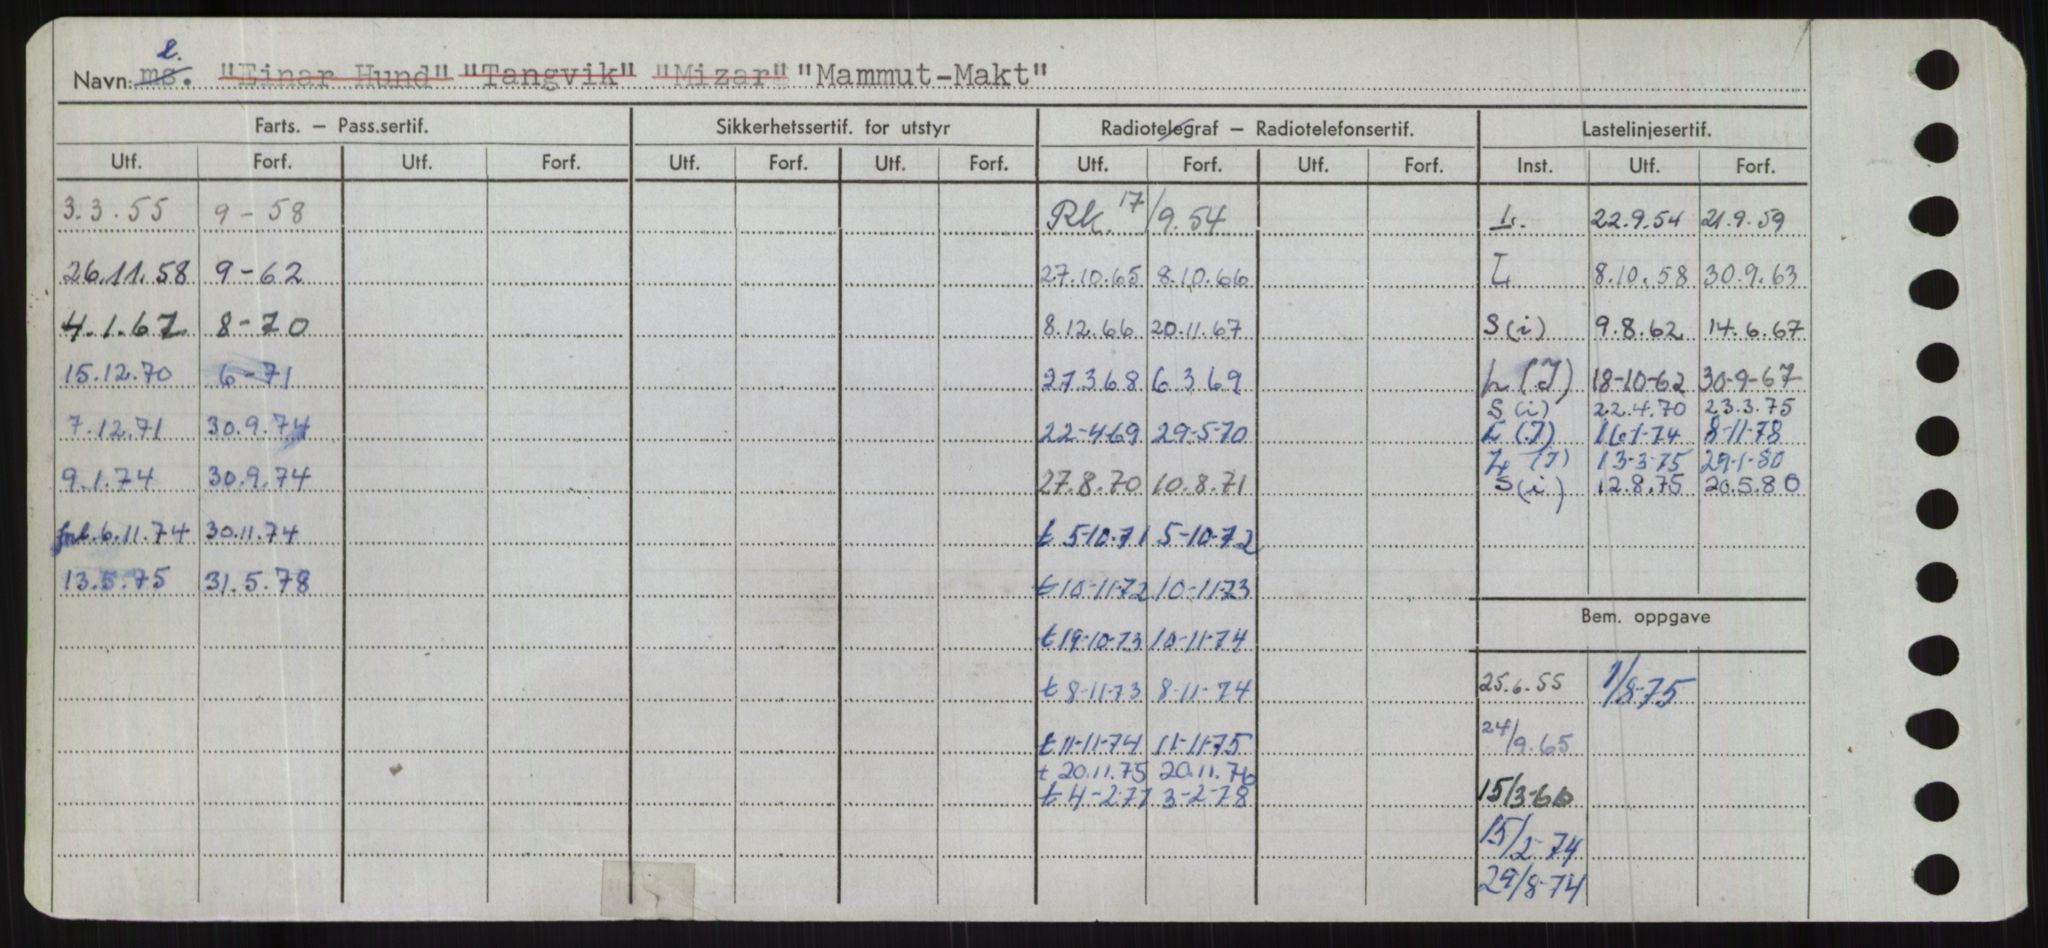 Navn: ms. l. "Einar Hund" "Tangvik" "Mizar" "Mammut-Makt"
Farts. – Pass.sertif. Sikkerhetssertif. for utstyr Radiotelegraf – Radiotelefonsertif. Lastelinjesertif.
Utf. Forf. Utf. Forf. Utf. Forf. Utf. Forf. Utf. Forf. Utf. Forf. Inst. Utf. Forf.
3.3.55 9-58 Rk. 17/9.54 L. 22.9.54 21.9.59
26.11.58 9-62 27.10.65 8.10.66 L 8.10.58 30.9.63
4.1.67 8-70 8.12.66 20.11.67 S(i) 9.8.62 14.6.67
15.12.70 6-71 27.3.68 6.3.69 L(I) 18-10-62 30-9-67
S(i) 22.4.70 23.3.75
7.12.71 30.9.74 22-4-69 29-5-70 L(I) 16-1-74 8-11-78
L(I) 13-3-75 29-1-80
9.1.74 30.9.74 27.8.70 10.8.71 S(i) 12.8.75 20.5.80
6.11.74 30.11.74 t 5-10-71 5-10-72
13.5.75 31.5.78 t 10-11-72 10-11-73
Bem. oppgave
t 19-10-73 10-11-74
t 8-11-73 8-11-74 25.6.55 1/8-75
t 11-11-74 11-11-75 24/9.65
t 20.11.75 20.11.76
t 4-2-77 3-2-78 15/3-66
15/2-74
29/8-74